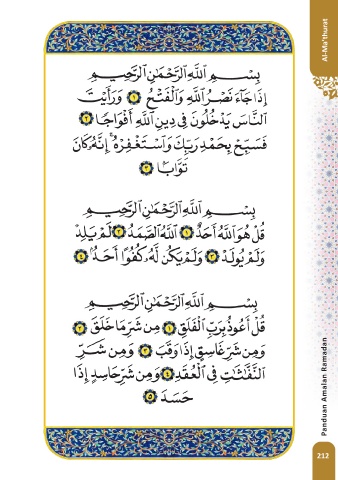 Al-Ma'thurat
بِسْمِ اللَّهِ الرَّحْمَٰنِ الرَّحِيمِ
إِذَا جَاءَ نَصْرُ اللَّهِ وَالْفَتْحُ ١ وَرَأَيْتَ
النَّاسَ يَدْخُلُونَ فِي دِينِ اللَّهِ أَفْوَاجًا ٢
فَسَبِّحْ بِحَمْدِ رَبِّكَ وَاسْتَغْفِرْهُ ۚ إِنَّهُ كَانَ
تَوَّابًا ٣
بِسْمِ اللَّهِ الرَّحْمَٰنِ الرَّحِيمِ
قُلْ هُوَ اللَّهُ أَحَدٌ ١ اللَّهُ الصَّمَدُ ٢ لَمْ يَلِدْ
وَلَمْ يُولَدْ ٣ وَلَمْ يَكُن لَّهُ كُفُوًا أَحَدٌ ٤
بِسْمِ اللَّهِ الرَّحْمَٰنِ الرَّحِيمِ
قُلْ أَعُوذُ بِرَبِّ الْفَلَقِ ١ مِن شَرِّ مَا خَلَقَ ٢
وَمِن شَرِّ غَاسِقٍ إِذَا وَقَبَ ٣ وَمِن شَرِّ
النَّفَّاثَاتِ فِي الْعُقَدِ ٤ وَمِن شَرِّ حَاسِدٍ إِذَا
حَسَدَ ٥
Panduan Amalan Ramadan
212